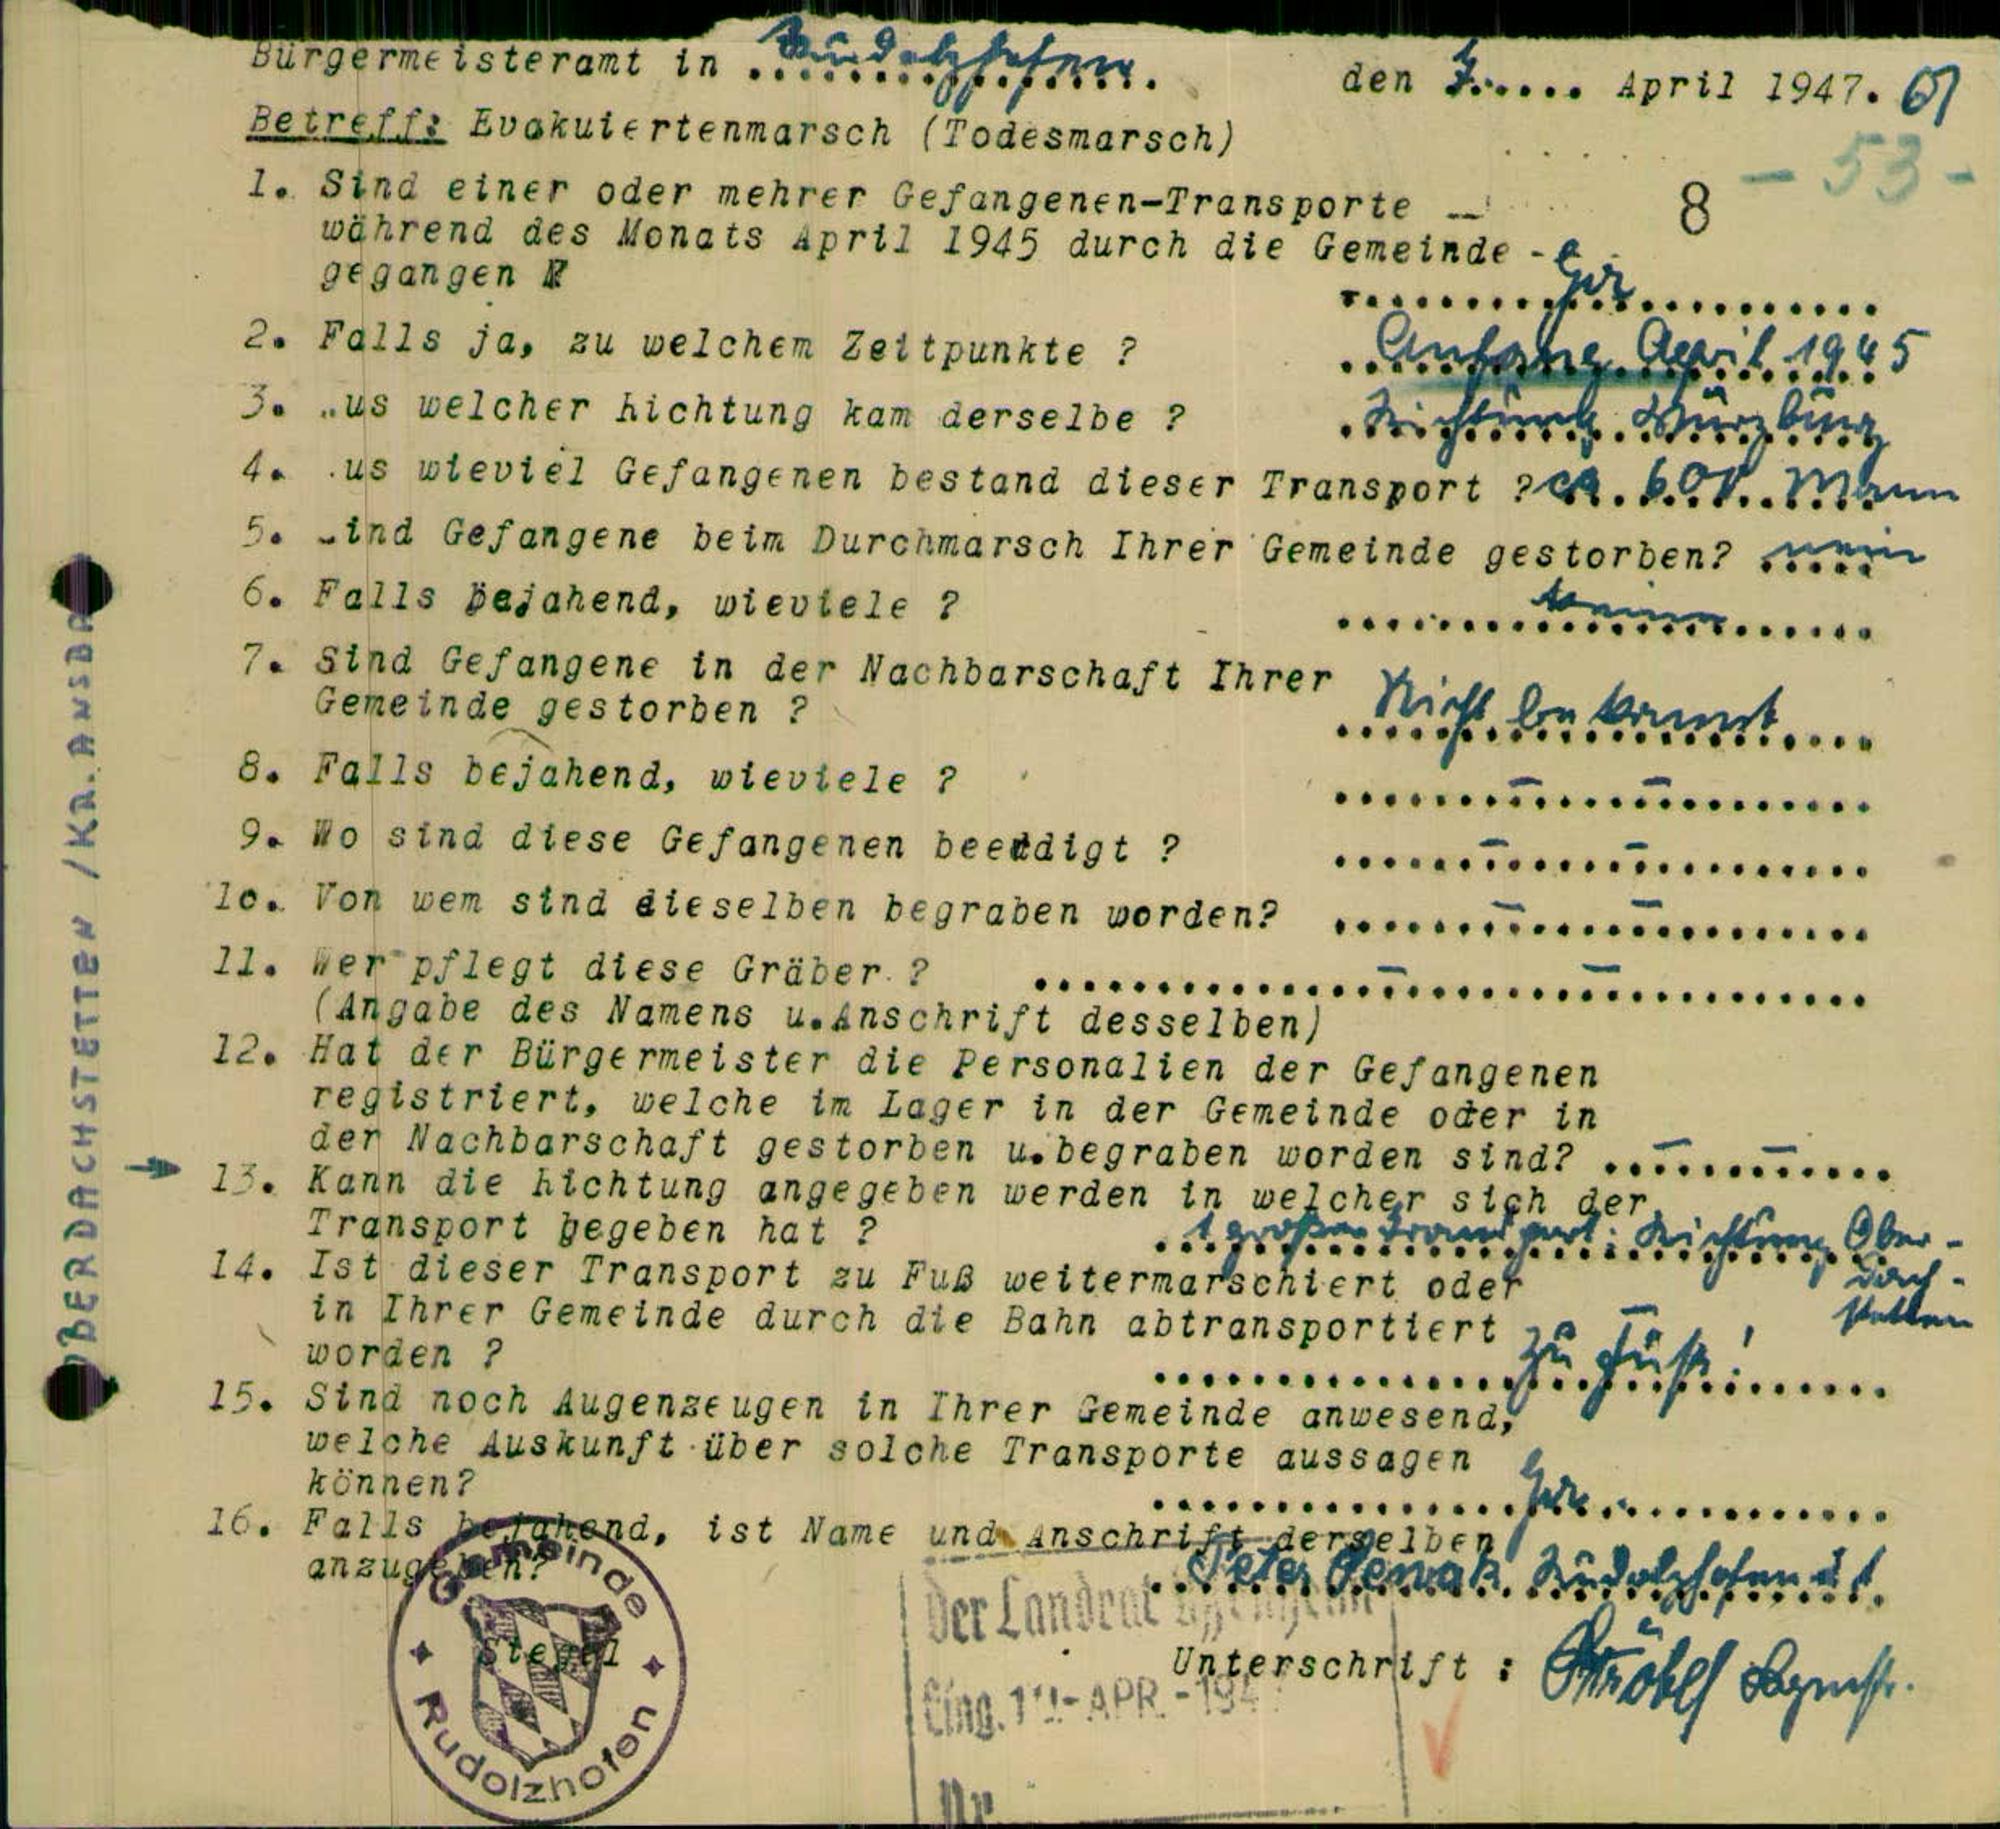 Bürgermeisteramt in Rudolzhofen. den 7. April 1947. 61
- 53 -
Betreff: Evakuiertenmarsch (Todesmarsch)
8
1. Sind einer oder mehrer Gefangenen-Transporte
während des Monats April 1945 durch die Gemeinde -
gegangen ? Ja
2. Falls ja, zu welchem Zeitpunkte ? Anfang April 1945
3. us welcher Richtung kam derselbe ? Richtung Würzburg
4. us wieviel Gefangenen bestand dieser Transport ? ca. 600 Mann
5. ind Gefangene beim Durchmarsch Ihrer Gemeinde gestorben? nein
6. Falls bejahend, wieviele ? keine
7. Sind Gefangene in der Nachbarschaft Ihrer
Gemeinde gestorben ? Nicht bekannt
8. Falls bejahend, wieviele ? - -
9. Wo sind diese Gefangenen beerdigt ? - -
10. Von wem sind dieselben begraben worden? - -
11. Wer pflegt diese Gräber ? - -
(Angabe des Namens u.Anschrift desselben)
12. Hat der Bürgermeister die Personalien der Gefangenen
registriert, welche im Lager in der Gemeinde oder in
der Nachbarschaft gestorben u.begraben worden sind? - -
13. Kann die Richtung angegeben werden in welcher sich der
Transport begeben hat ? 1 großer Transport: Richtung Ober-
dach-
stetten
14. Ist dieser Transport zu Fuß weitermarschiert oder
in Ihrer Gemeinde durch die Bahn abtransportiert
worden ? zu Fuß!
15. Sind noch Augenzeugen in Ihrer Gemeinde anwesend,
welche Auskunft über solche Transporte aussagen
können? Ja.
16. Falls bejahend, ist Name und Anschrift derselben
anzugeben? Peter Rudolzhofen
Siegel
Gemeinde
Rudolzhofen
Der Landrat Uffenheim
Eing. APR. 194
Nr.
Unterschrift : Ströbel Bgmstr.
OBERDACHSTETTEN /KR.ANSBA